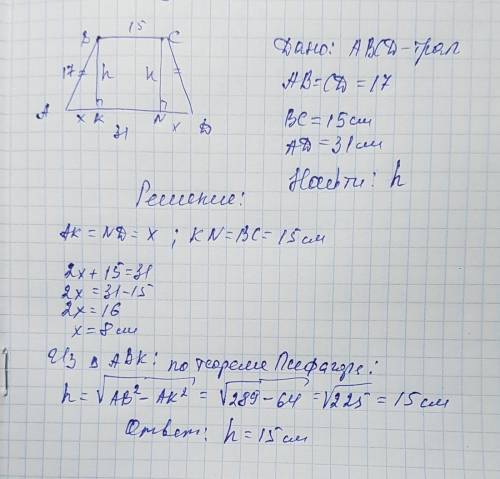 15
B C
17 h h
A x K N x D
31
Дано: ABCD-трап
AB=CD=17
BC=15см
AD=31см
Найти: h
Решение:
AK=ND=x; KN=BC=15см
2x+15=31
2x=31-15
2x=16
x=8см
Из Δ ABK: по теореме Пифагора:
h=√AB²-AK²=√289-64=√225=15см
Ответ: h=15см